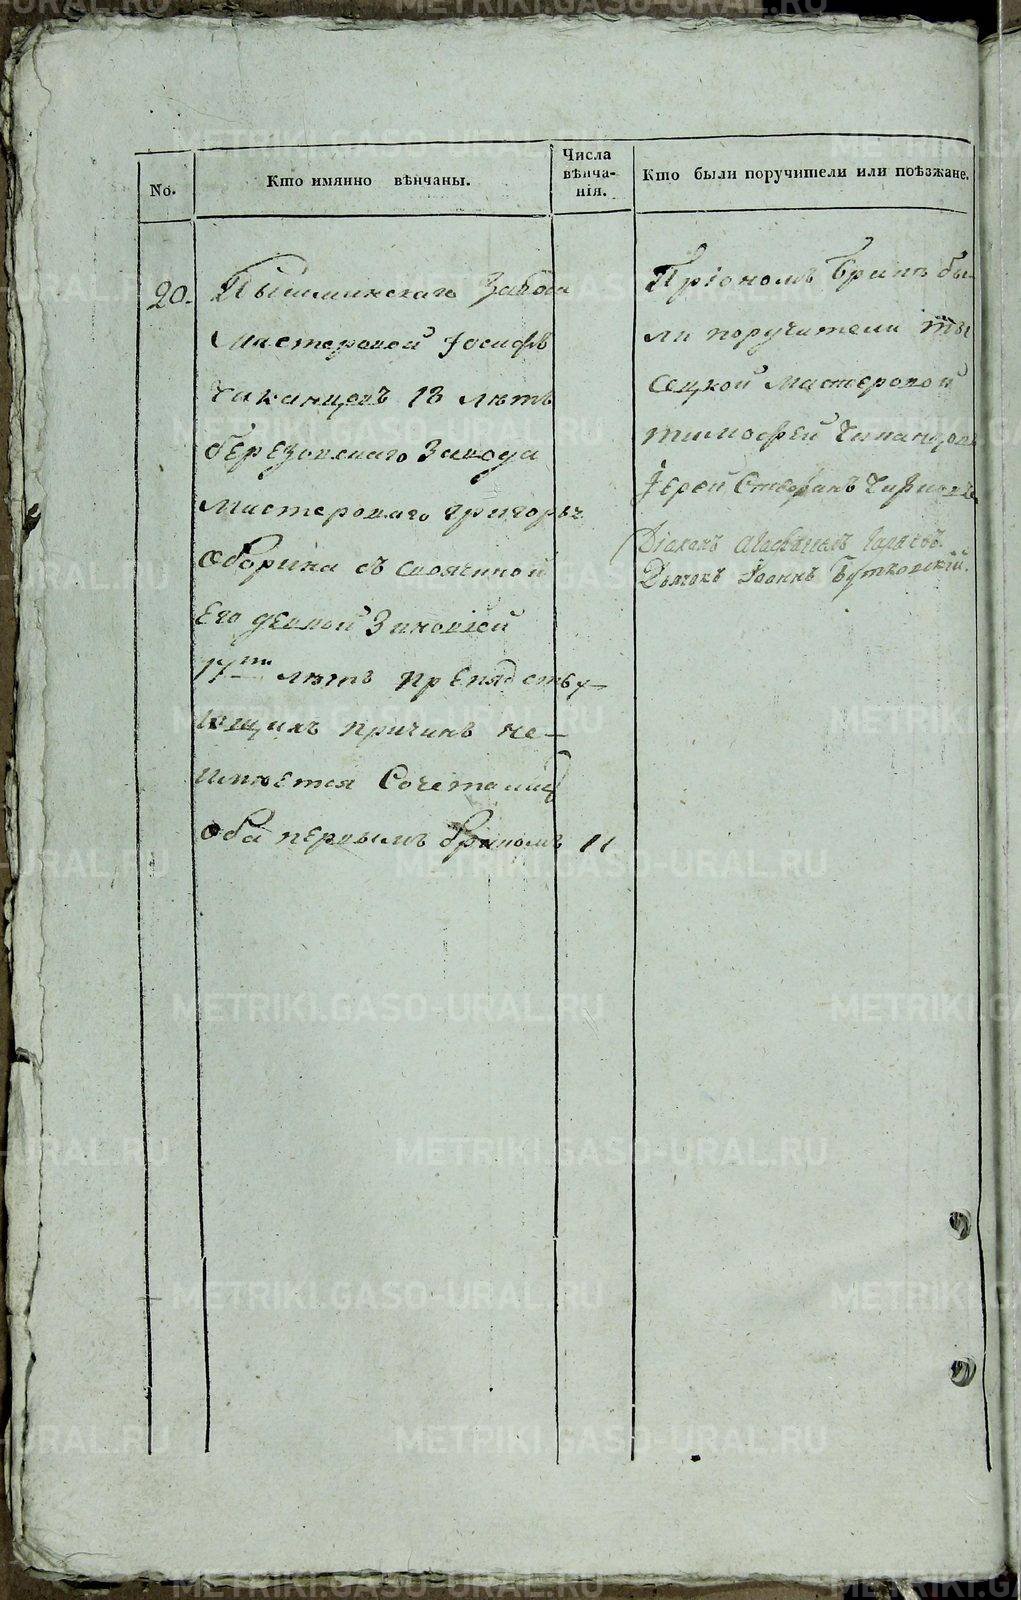 No.
Кто имянно вѣнчаны.
Числа
вѣнча-
нія.
Кто были поручители или поѣзжане.
20.
Пышминскаго Завода
Мастеровой Іосифъ
Чиканцовъ 18 лѣтъ
березовскаго Завода
Мастероваго Григорья
Оборина съ
Его девкой Зиновіей
17ти лѣтъ препядству-
ющихъ причинъ не-
имѣется Сочетались
оба первымъ бракомъ
11
При ономъ Бракѣ бы-
ли поручители
мастеровой
тимофей Чиканцовъ
Іерей Стефанъ
Діаконъ
Дьячокъ Іоаннъ Бутковскій.
METRIKI.GASO-URAL.RU